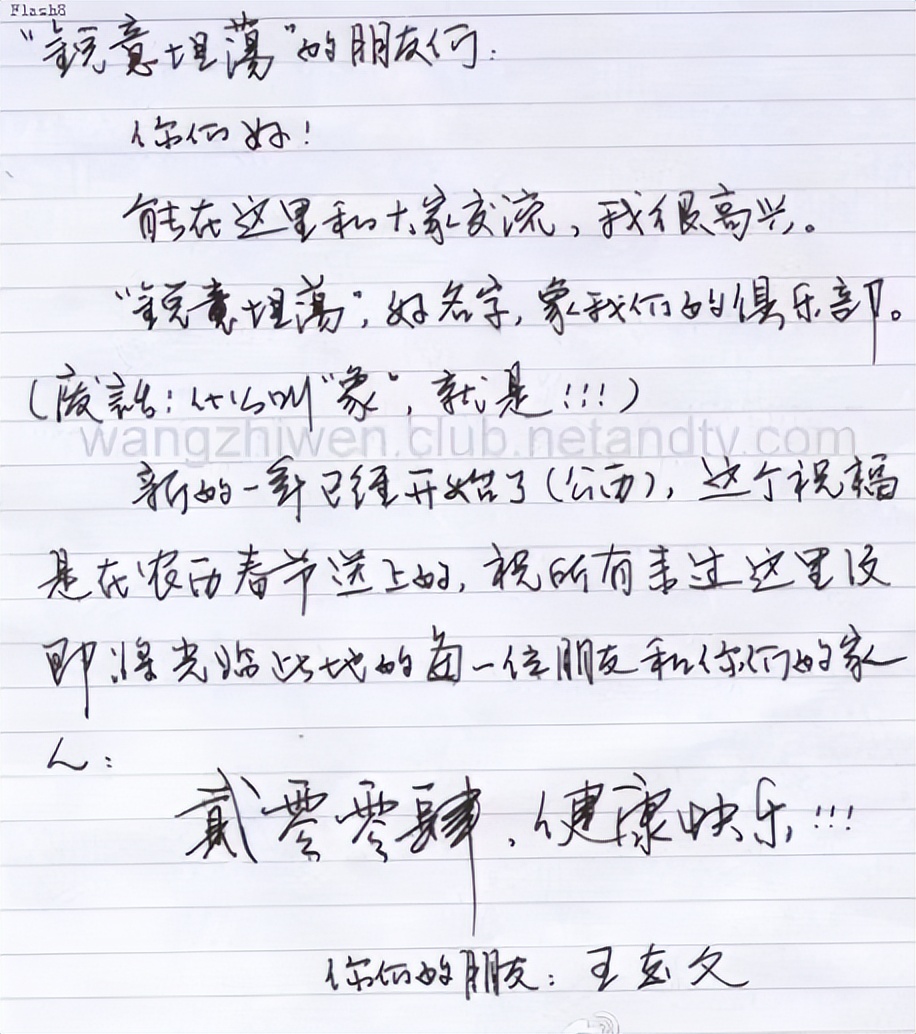 Flash8
“锐意坦荡”的朋友们：
你们好！
能在这里和大家交流，我很高兴。
“锐意坦荡”，好名字，象我们的俱乐部。
（废話：什么叫“象”，就是!!!）
wangzhiwen.club.netandtv.com
新的一年已经开始了（公历），这个祝福
是在农历春节送上的，祝所有来过这里没
即将光临此地的每一位朋友和你们的家
人：
貳零零肆，健康快乐!!!
你们的朋友：王志文